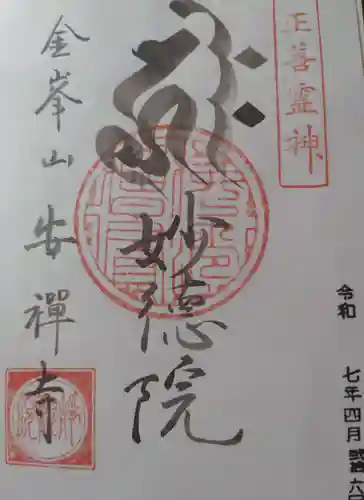 正善霊神
妙徳院
金峯山安禅寺
令和 七年四月弐拾六日